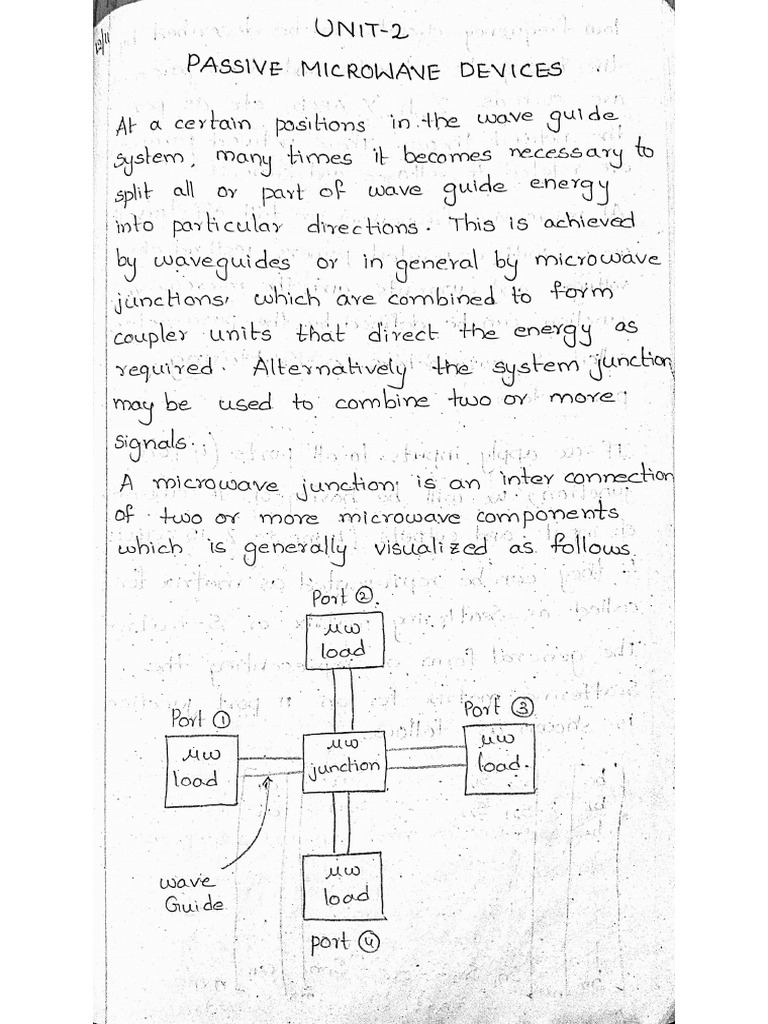 12/11
UNIT-2
PASSIVE MICROWAVE DEVICES
At a certain positions in the wave guide
system, many times it becomes necessary to
split all or part of wave guide energy
into particular directions. This is achieved
by waveguides or in general by microwave
junctions, which are combined to form
coupler units that direct the energy as
required. Alternatively the system junction
may be used to combine two or more
signals.
A microwave junction is an inter connection
of two or more microwave components
which is generally visualized as follows
Port ②
μw
load
Port ①
μw
load
μw
junction
Port ③
μw
load.
wave
Guide
μw
load
port ④